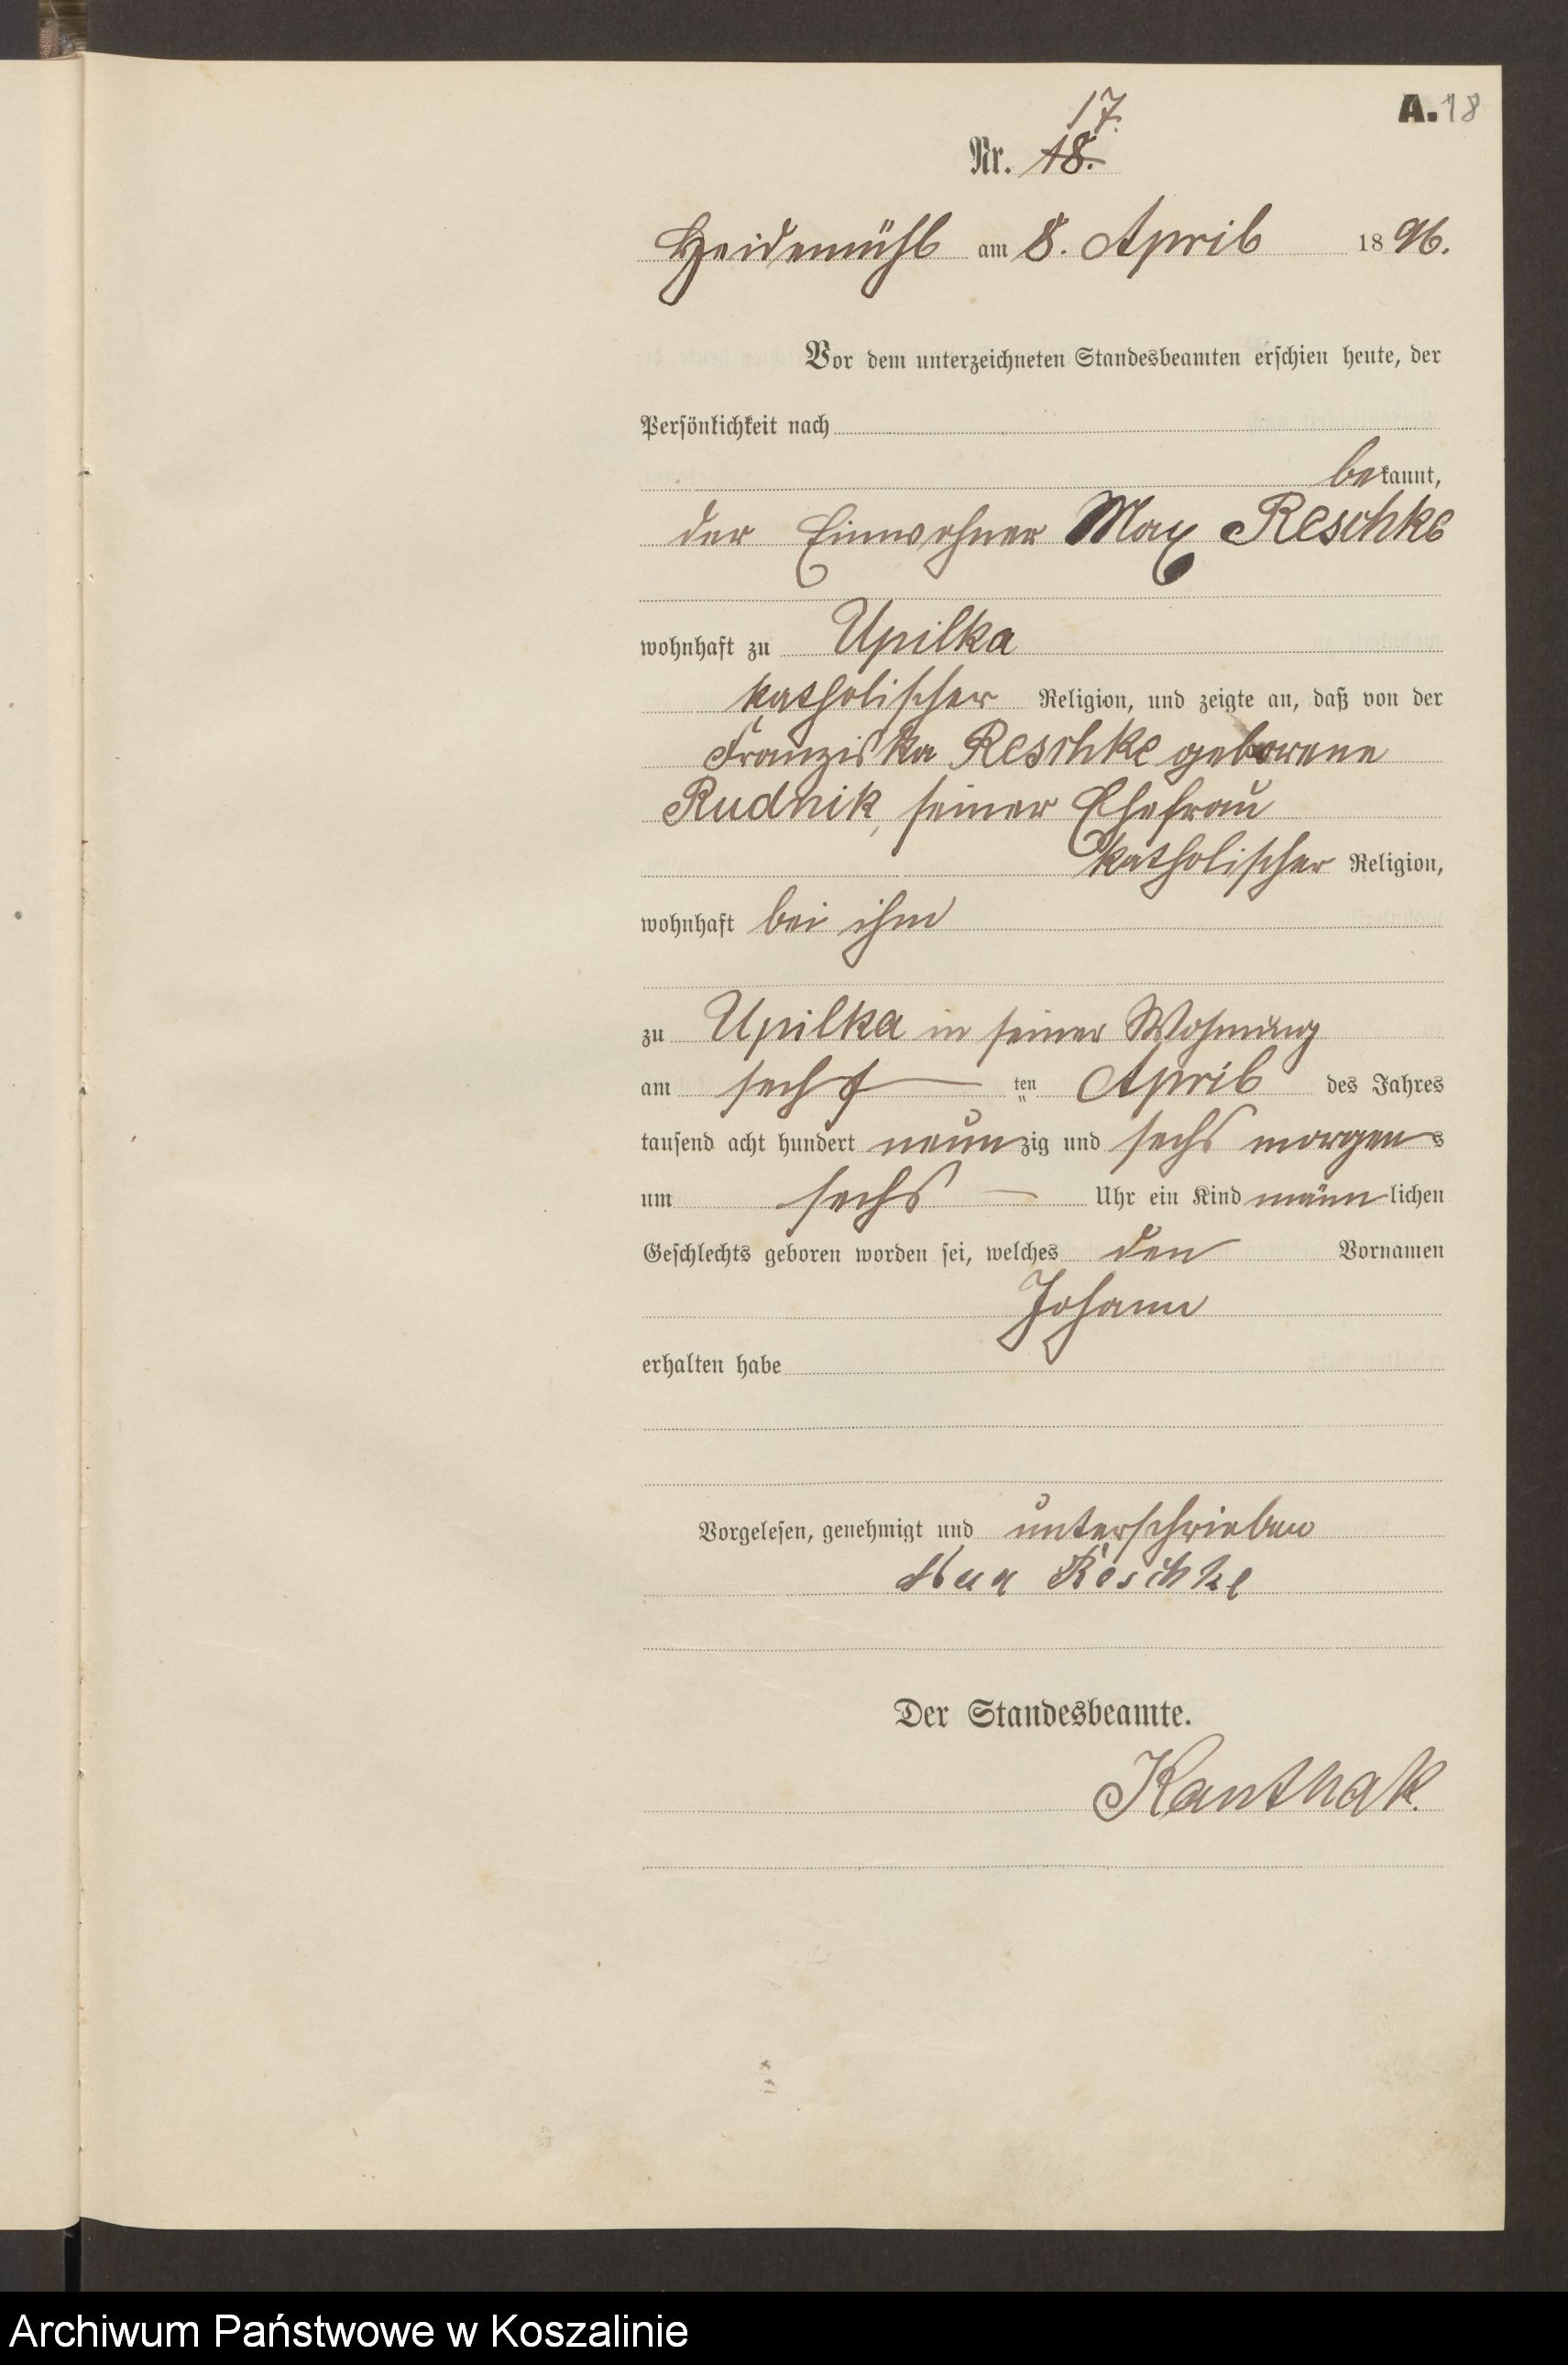 A. 18
17.
Nr. 18.
Heidemühl am 8. April 1896.
Vor dem unterzeichneten Standesbeamten erschien heute, der
Persönlichkeit nach
bekannt,
der Einwohner Max Reschke
wohnhaft zu Upilka
katholischer Religion, und zeigte an, daß von der
Franziska Reschke geborene
Rudnik, seiner Ehefrau
katholischer Religion,
wohnhaft bei ihm
zu Upilka in seiner Wohnung
am sechsten April des Jahres
tausend acht hundert neunzig und sechs morgens
um sechs Uhr ein Kind männlichen
Geschlechts geboren worden sei, welches den Vornamen
Johann
erhalten habe
Vorgelesen, genehmigt und unterschrieben
Max Reschke
Der Standesbeamte.
Kanthak.
Archiwum Państwowe w Koszalinie